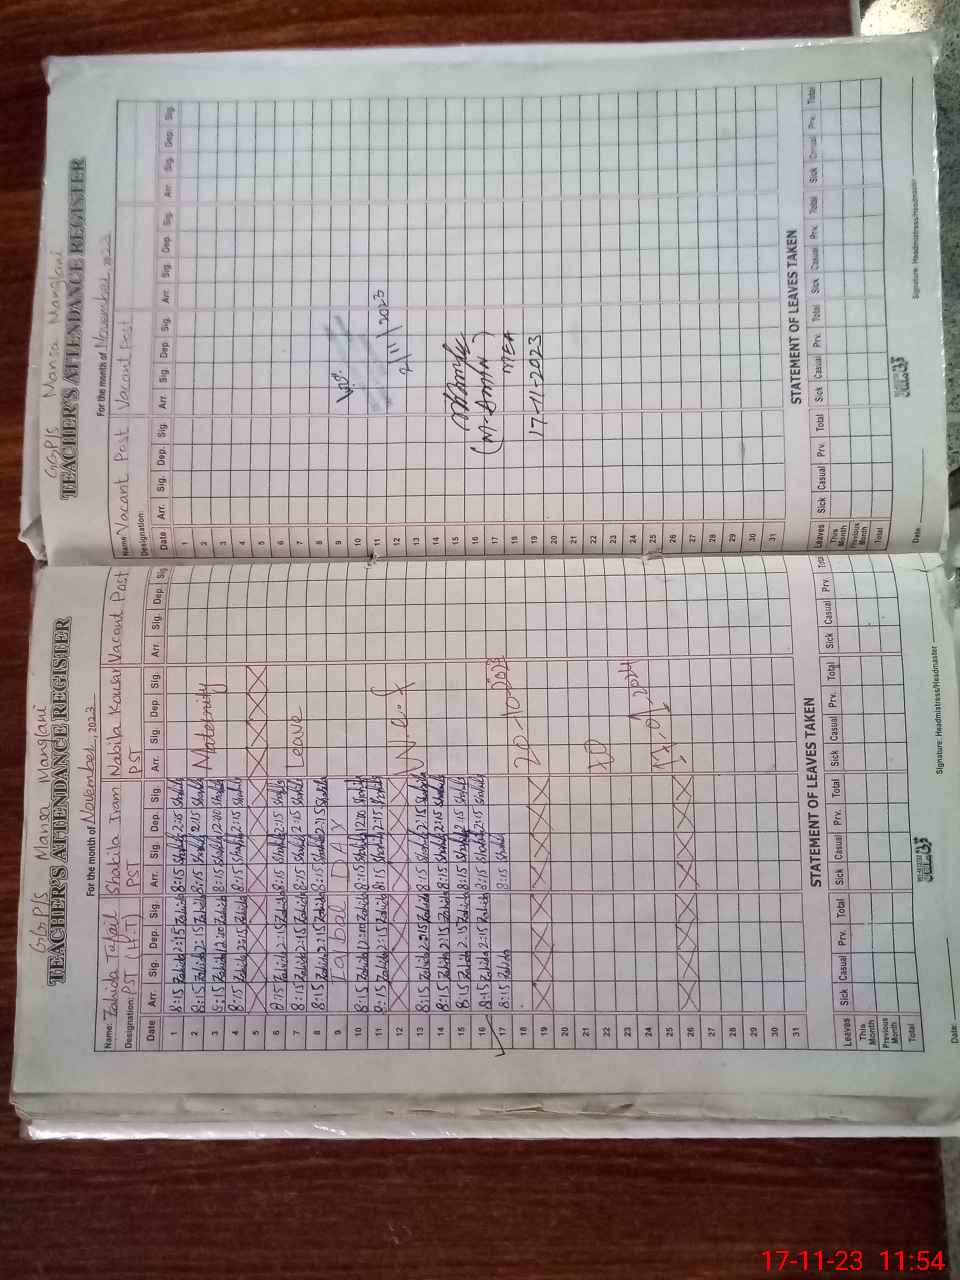 GGP/S Mansa Manglani
TEACHER'S ATTENDANCE REGISTER
For the month of November, 2023
Name: Zahida Tufail Shabila Iram Nabila Kousar Vacant Post
Designation: PST (H.T) PST PST
Date Arr. Sig. Dep. Sig. Arr. Sig. Dep. Sig. Arr. Sig. Dep. Sig. Arr. Sig. Dep. Sig.
1 8:15 Zahida 2:15 Zahida 8:15 Shabila 2:15 Shabila
2 8:15 Zahida 2:15 Zahida 8:15 Shabila 2:15 Shabila Maternity
3 8:15 Zahida 12:00 Zahida 8:15 Shabila 12:00 Shabila
4 8:15 Zahida 2:15 Zahida 8:15 Shabila 2:15 Shabila
5
6 8:15 Zahida 2:15 Zahida 8:15 Shabila 2:15 Shabila
7 8:15 Zahida 2:15 Zahida 8:15 Shabila 2:15 Shabila Leave
8 8:15 Zahida 2:15 Zahida 8:15 Shabila 2:15 Shabila
9 Iqbal DAY
10 8:15 Zahida 12:00 Zahida 8:15 Shabila 12:00 Shabila
11 8:15 Zahida 2:15 Zahida 8:15 Shabila 2:15 Shabila
12 W.e.f
13 8:15 Zahida 2:15 Zahida 8:15 Shabila 2:15 Shabila
14 8:15 Zahida 2:15 Zahida 8:15 Shabila 2:15 Shabila
15 8:15 Zahida 2:15 Zahida 8:15 Shabila 2:15 Shabila
16 8:15 Zahida 2:15 Zahida 8:15 Shabila 2:15 Shabila
17 8:15 Zahida 8:15 Shabila
18 20-10-2023
19
20
21
22 TO
23
24
25 17-01-2024
26
27
28
29
30
31
STATEMENT OF LEAVES TAKEN
Leaves Sick Casual Prv. Total Sick Casual Prv. Total Sick Casual Prv. Total Sick Casual Prv. Total
This Month
Previous Month
Total
Date: Signature: Headmistress/Headmaster
GGP/S Mansa Manglani
TEACHER'S ATTENDANCE REGISTER
For the month of November 2023
Name: Vacant Post Vacant Post
Designation:
Date Arr. Sig. Dep. Sig. Arr. Sig. Dep. Sig. Arr. Sig. Dep. Sig. Arr. Sig. Dep. Sig.
1
2
3
4
5
6
7
8
9
10
11
12 2/11/2023
13
14
15
16 (M-Amin)
17 MEA
18
19 17-11-2023
20
21
22
23
24
25
26
27
28
29
30
31
STATEMENT OF LEAVES TAKEN
Leaves Sick Casual Prv. Total Sick Casual Prv. Total Sick Casual Prv. Total Sick Casual Prv. Total
This Month
Previous Month
Total
Date: Signature: Headmistress/Headmaster
17-11-23 11:54